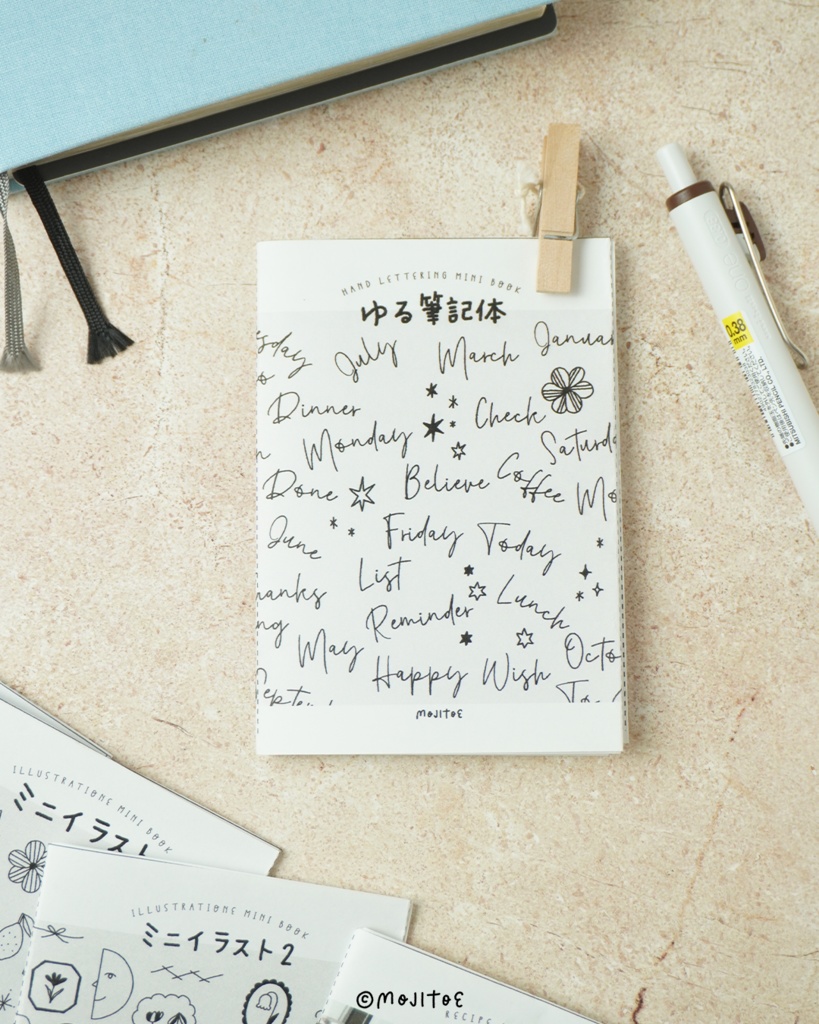 HAND LETTERING MINI BOOK
ゆる筆記体
July March Januar
Dinner Check
Monday Saturda
Done Believe Coffee Mo
June Friday Today
List
hanks Lunch
Reminder
ng May Octo
Happy Wish
Septem To
MOJITOE
0.38
mm
MITSUBISHI PENCIL CO., LTD.
ILLUSTRATIONS MINI BOOK
ミニイラスト
ILLUSTRATIONS MINI BOOK
ミニイラスト2
RECIPE
©MOJITOE